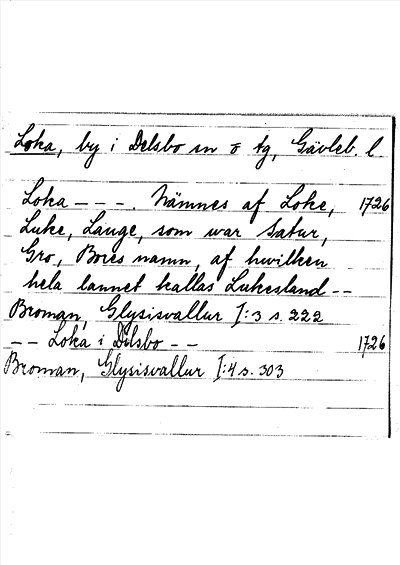 Loka, by i Delsbo sn o tg, Gävleb. l
Loka - - -. Nämnes af Loke, 1726
Luke, Lauge, som war Satur,
Gro, Bores namn, af hwilken
hela lannet kallas Lukesland - -
Broman, Glysisvallur I:3 s. 222
- - Loka i Delsbo - - 1726
Broman, Glysisvallur I:4 s. 303